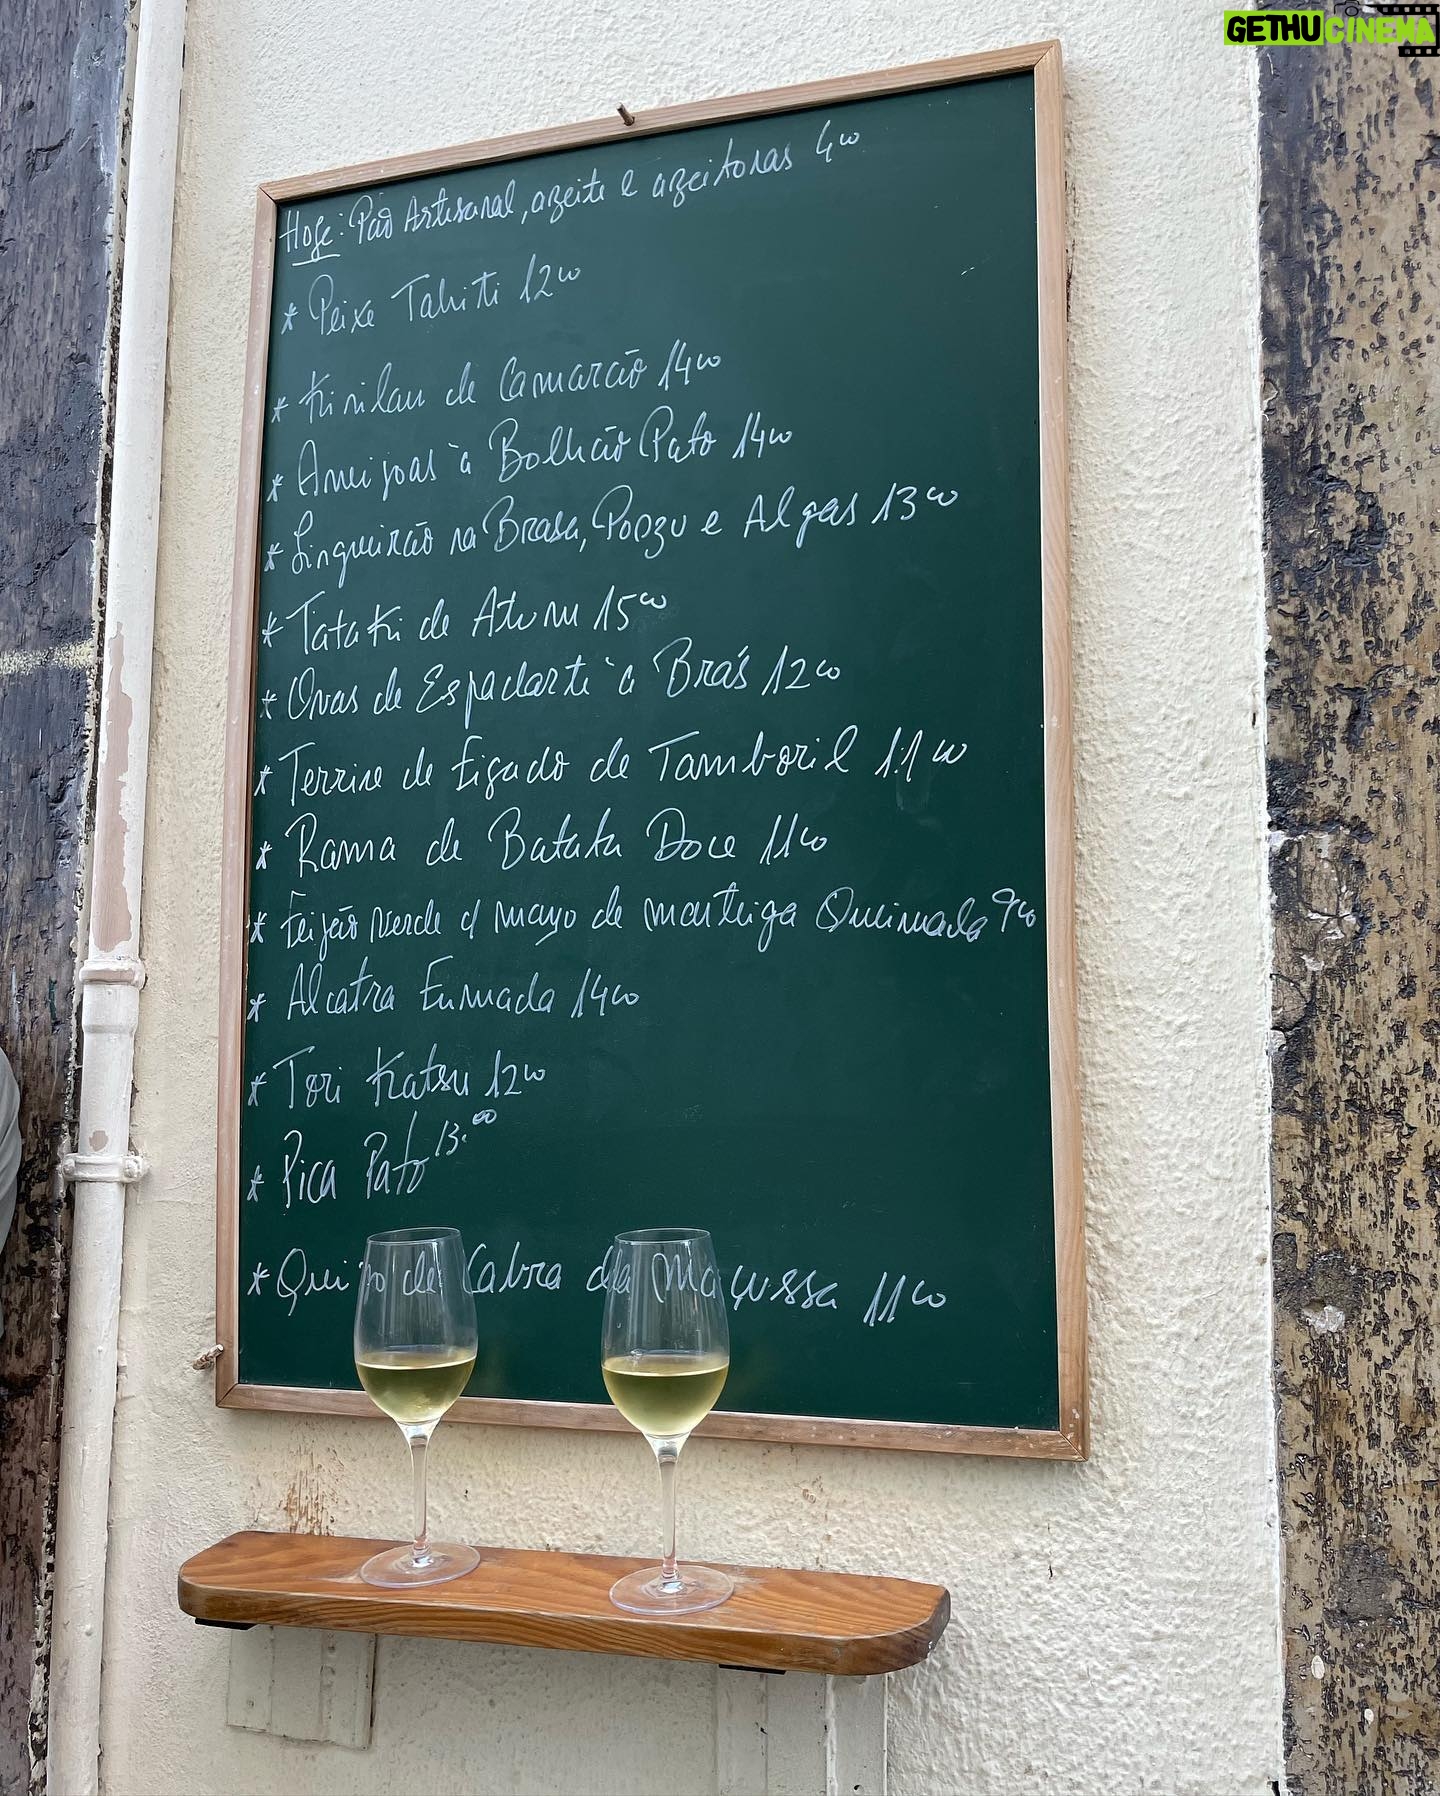 GETHUCINEMA
Hoje: Pão Artesanal, azeite e azeitonas 400
* Peixe Tahiti 1200
* Kinilau de Camarão 1400
* Ameijoas à Bolhão Pato 1400
* Lingueirão na Brasa, Ponzu e Algas 1300
* Tataki de Atum 1500
* Ovas de Espadarte à Brás 1200
* Terrine de Figado de Tamboril 1100
* Rama de Batata Doce 1100
* Feijão Verde c/ mayo de manteiga Queimada 900
* Alcatra Fumada 1400
* Tori Katsu 1200
* Pica Pato 13.00
* Queijo de Cabra da Maçussa 1100